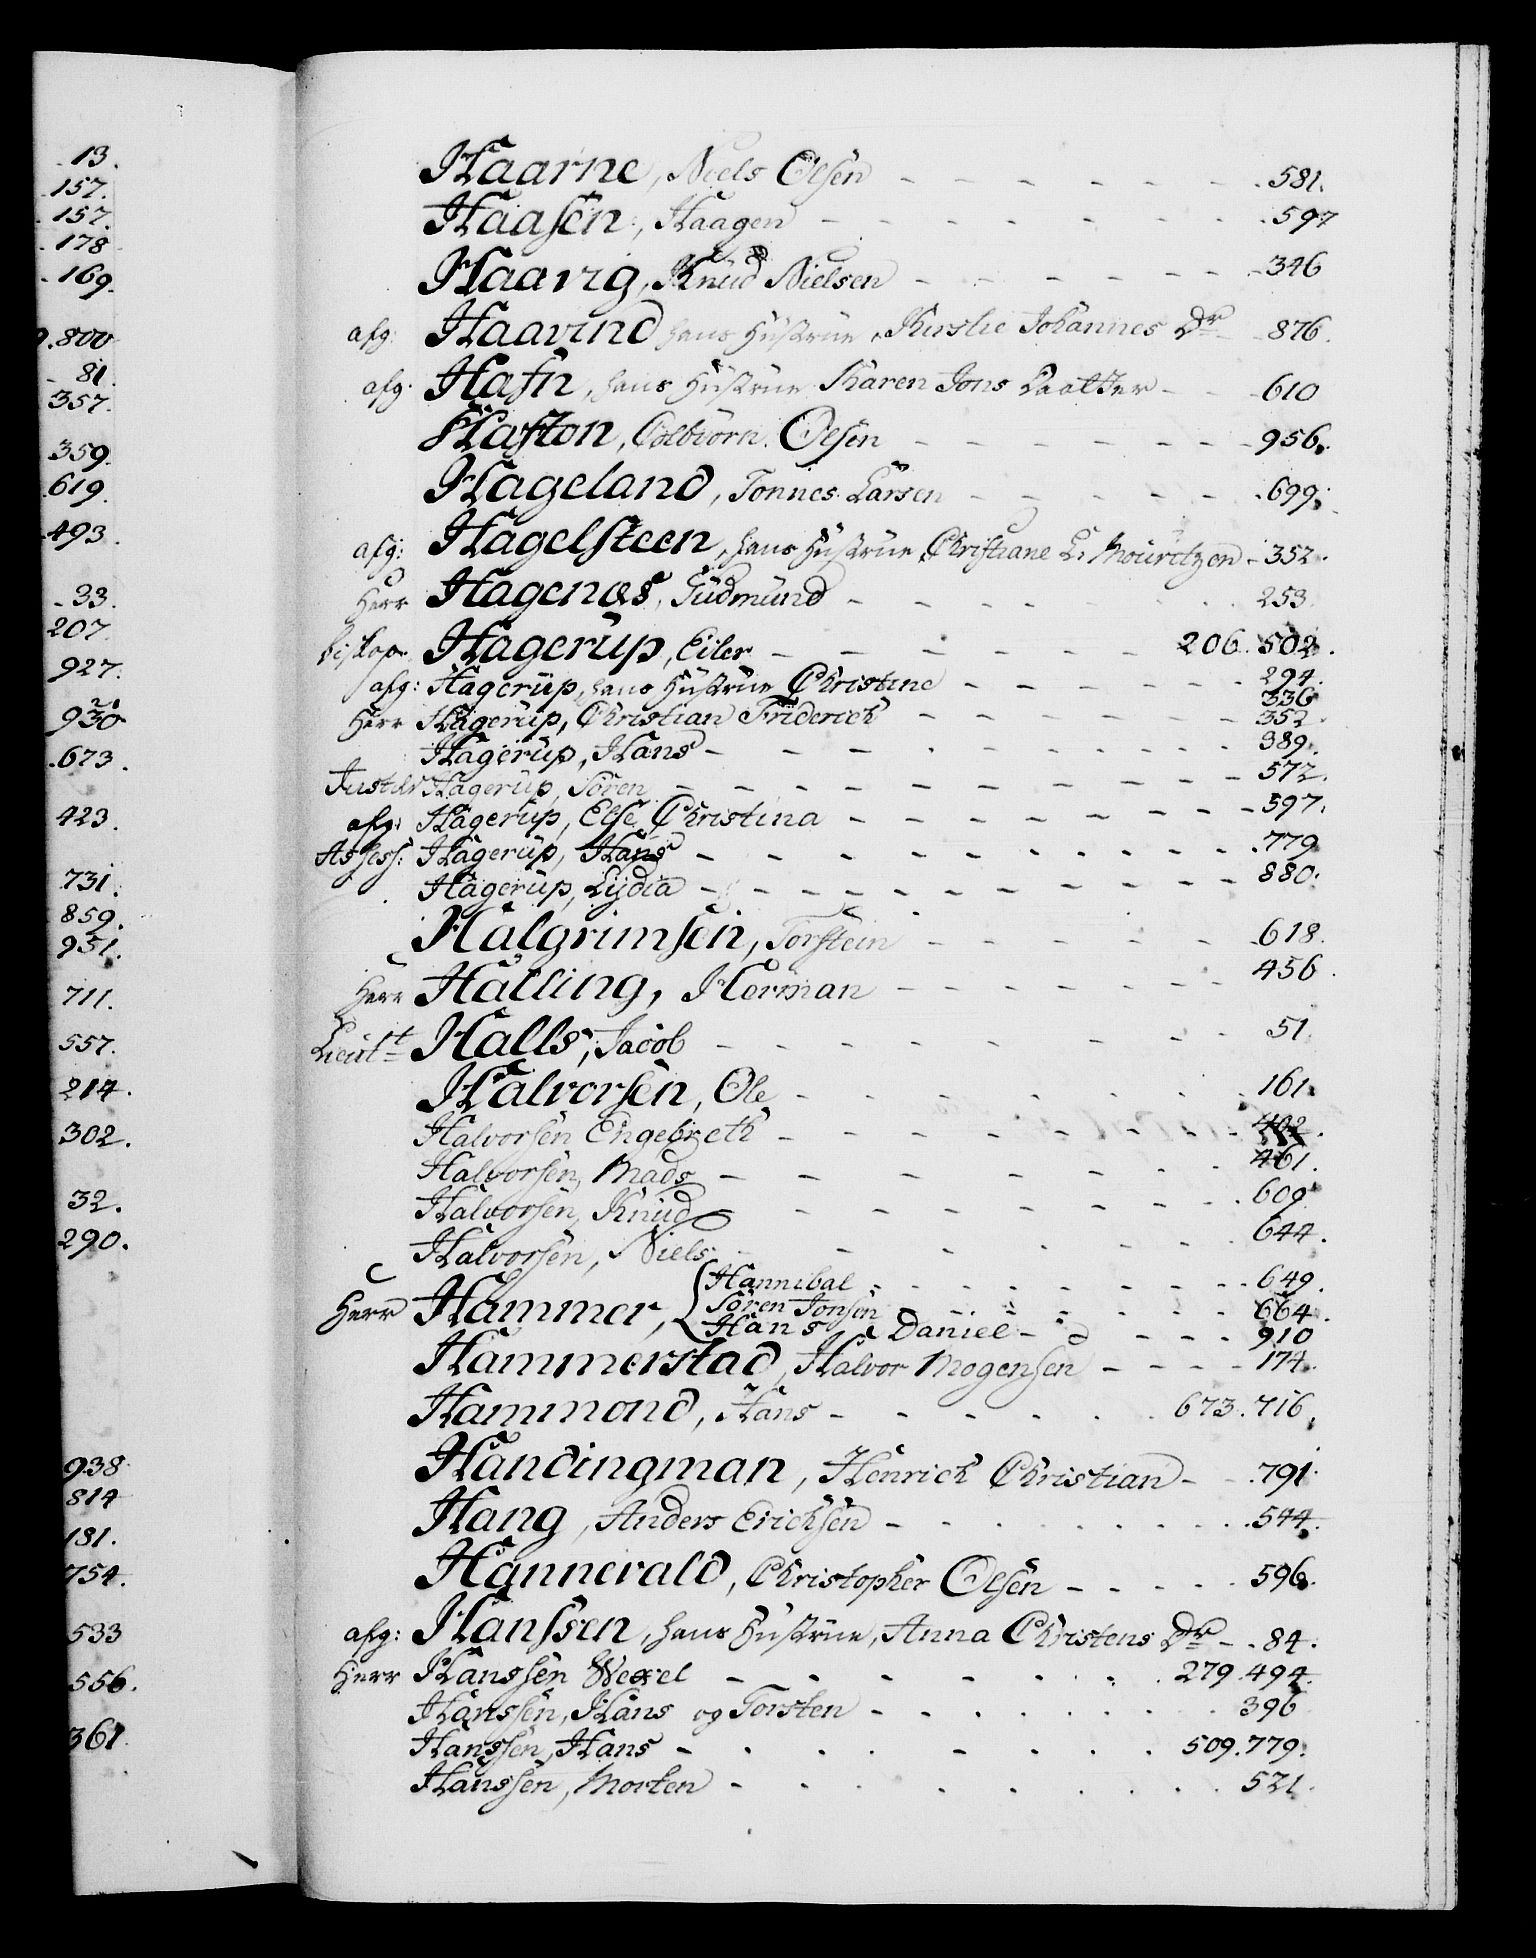 13.
157.
157.
178
169.
9.800
81.
357.
359.
619.
493.
33.
207.
927.
930
673.
423.
731.
859.
951.
711.
557.
214.
302.
32.
290.
938.
814
181.
754.
533
556.
361.
Haarne, Niels Olsen - - - - - - - 581.
Haasen, Haagen - - - - - - - 597
Haavig, Knud Nielsen - - - - - - 346
afg: Haavind hans Hustrue, Kirstie Johannes Dr - 876.
afg. Hafn, hans Hustrue Karen Jons Daatter - - 610
Hafton, Colbiörn Olsen - - - - - - - 956.
Hageland, Tönnes Larsen - - - - - - 699.
afg: Hagelsteen, hans Hustrue Christiane L. Mouritzen - 352.
Herr Hagenæs, Gudmund - - - - - - 253.
biskop Hagerup, Eiler - - - - - - 206. 502.
afg: Hagerup, hans Hustrue Christine - - - - - 294.
336
Herr Hagerup, Christian Friderich - - - - - - 352.
Hagerup, Hans - - - - - - - - 389.
Hagerup, Sören - - - - - - - - 572.
afg: Hagerup, Else Christina - - - - - - - 597.
Assess: Hagerup, Hans - - - - - - - - 779.
Hagerup, Lydia - - - - - - - - 880.
Halgrimsen, Torstein - - - - - - 618.
Herr Halling, Herman - - - - - - - 456.
Lieutt Halls, Jacob - - - - - - - 51.
Halvorsen, Ole - - - - - - - 161.
Halvorsen Engebreth - - - - - - - 402.
Halvorsen, Mads - - - - - - - 461.
Halvorsen, Knud - - - - - - - 609.
Halvorsen, Niels - - - - - - - 644.
Hannibal - - - - - - - - 649.
Herr Hammer, { Sören Jonsen - - - - - - - 664.
Hans Daniel - - - - - 910
Hammerstad, Halvor Mogensen - - - - 174.
Hammond, Hans - - - - - - 673. 716.
Handingman, Henrich Christian - - 791.
Hang, Anders Erichsen - - - - - - - 544.
Hannevald, Christopher Olsen - - - - - 596.
afg: Hanssen, hans Hustrue, Anna Christens Dr - 84.
Herr Hanssen Wexel - - - - - - - 279. 494.
Hanssen, Hans og Torsten - - - - - - 396
Hanssen, Hans - - - - - - - 509. 779.
Hanssen, Morten - - - - - - - 521.